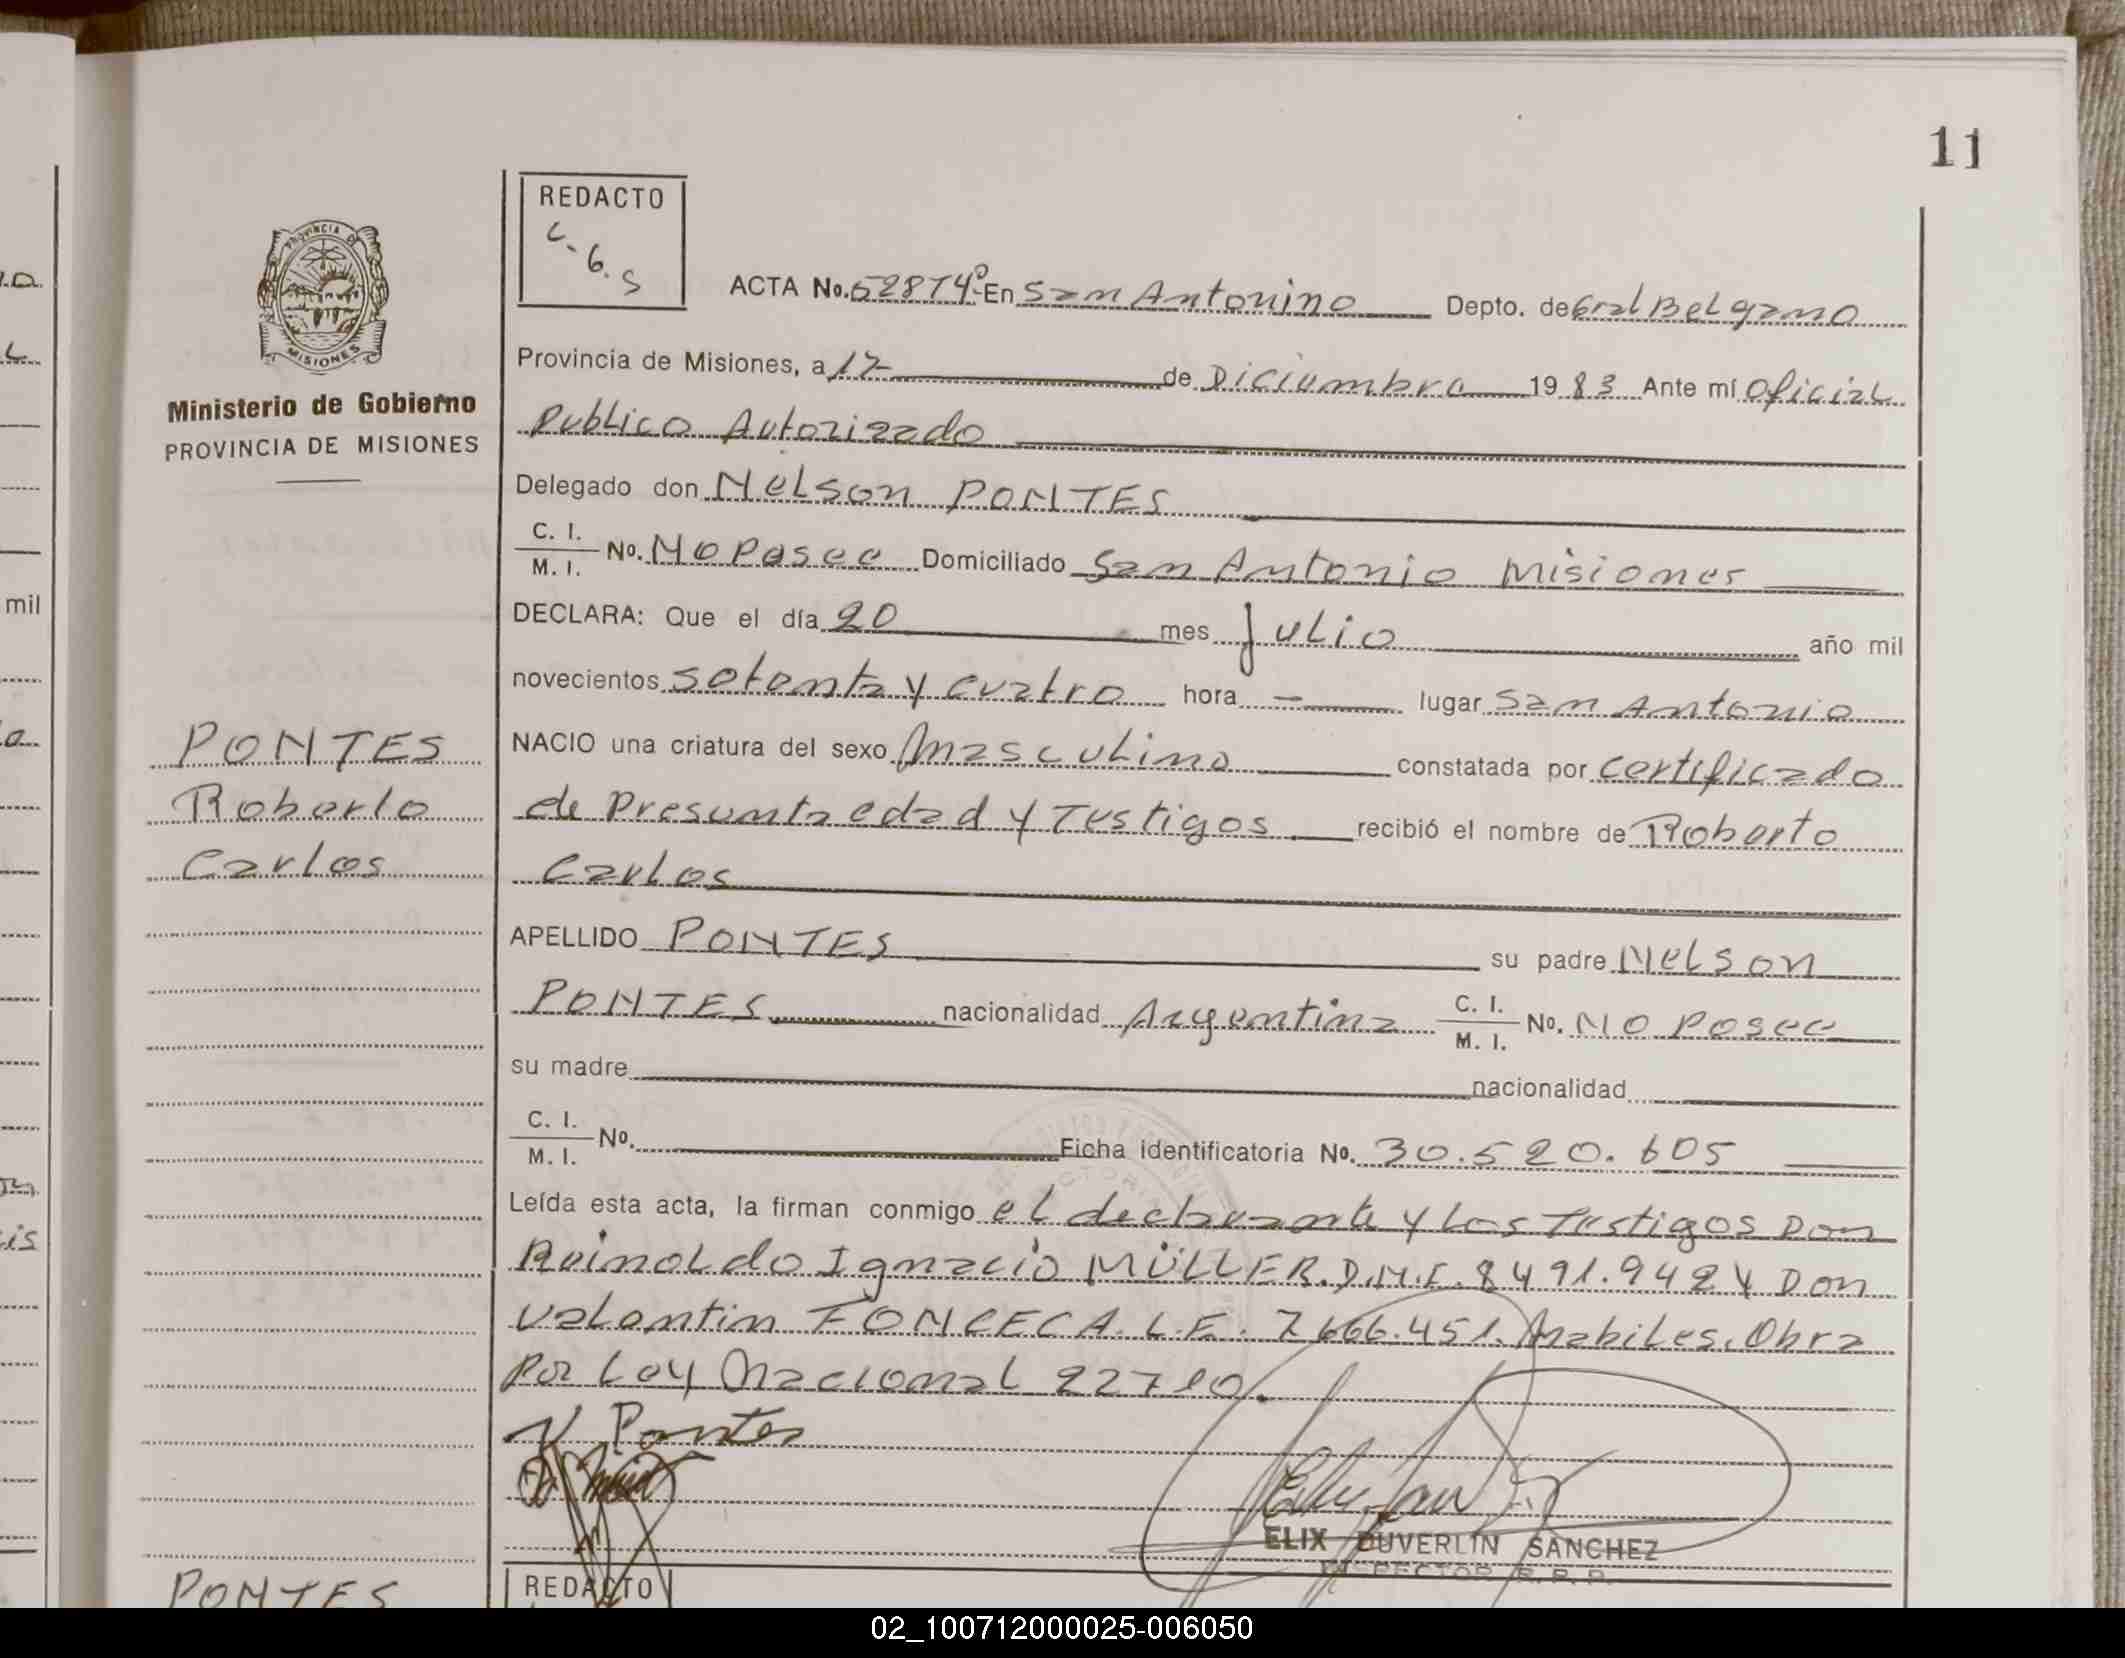 11
REDACTO
C.G.S
PROVINCIA DE
MISIONES
Ministerio de Gobierno
PROVINCIA DE MISIONES
ACTA No. 52874º En San Antonino Depto. de Gral Belgrano
Provincia de Misiones, a 17 de Diciembre 1983 Ante mí Oficial
Publico Autorizado
Delegado don Nelson PONTES
C. I.
M. I. No. No Posee Domiciliado San Antonio Misiones
DECLARA: Que el día 20 mes Julio año mil
novecientos setenta y cuatro hora — lugar San Antonio
NACIO una criatura del sexo Masculino constatada por certificado
de Presunta edad y Testigos recibió el nombre de Roberto
Carlos
PONTES
Roberto
Carlos
APELLIDO PONTES su padre Nelson
PONTES nacionalidad Argentina C. I.
M. I. No. No Posee
su madre nacionalidad
C. I.
M. I. No. Ficha identificatoria No. 30.520.605
Leída esta acta, la firman conmigo el declarante y Los Testigos Don
Reinoldo Ignacio MÜLLER. D.N.I. 8491.942 y Don
Valentin FONCECA L.E. 7.666.451. Habiles. Obra
Por Ley Nacional 22710.
N Pontes
ELIX DUVERLIN SANCHEZ
INSPECTOR R.P.P.
REDACTO
PONTES
mil
02_100712000025-006050